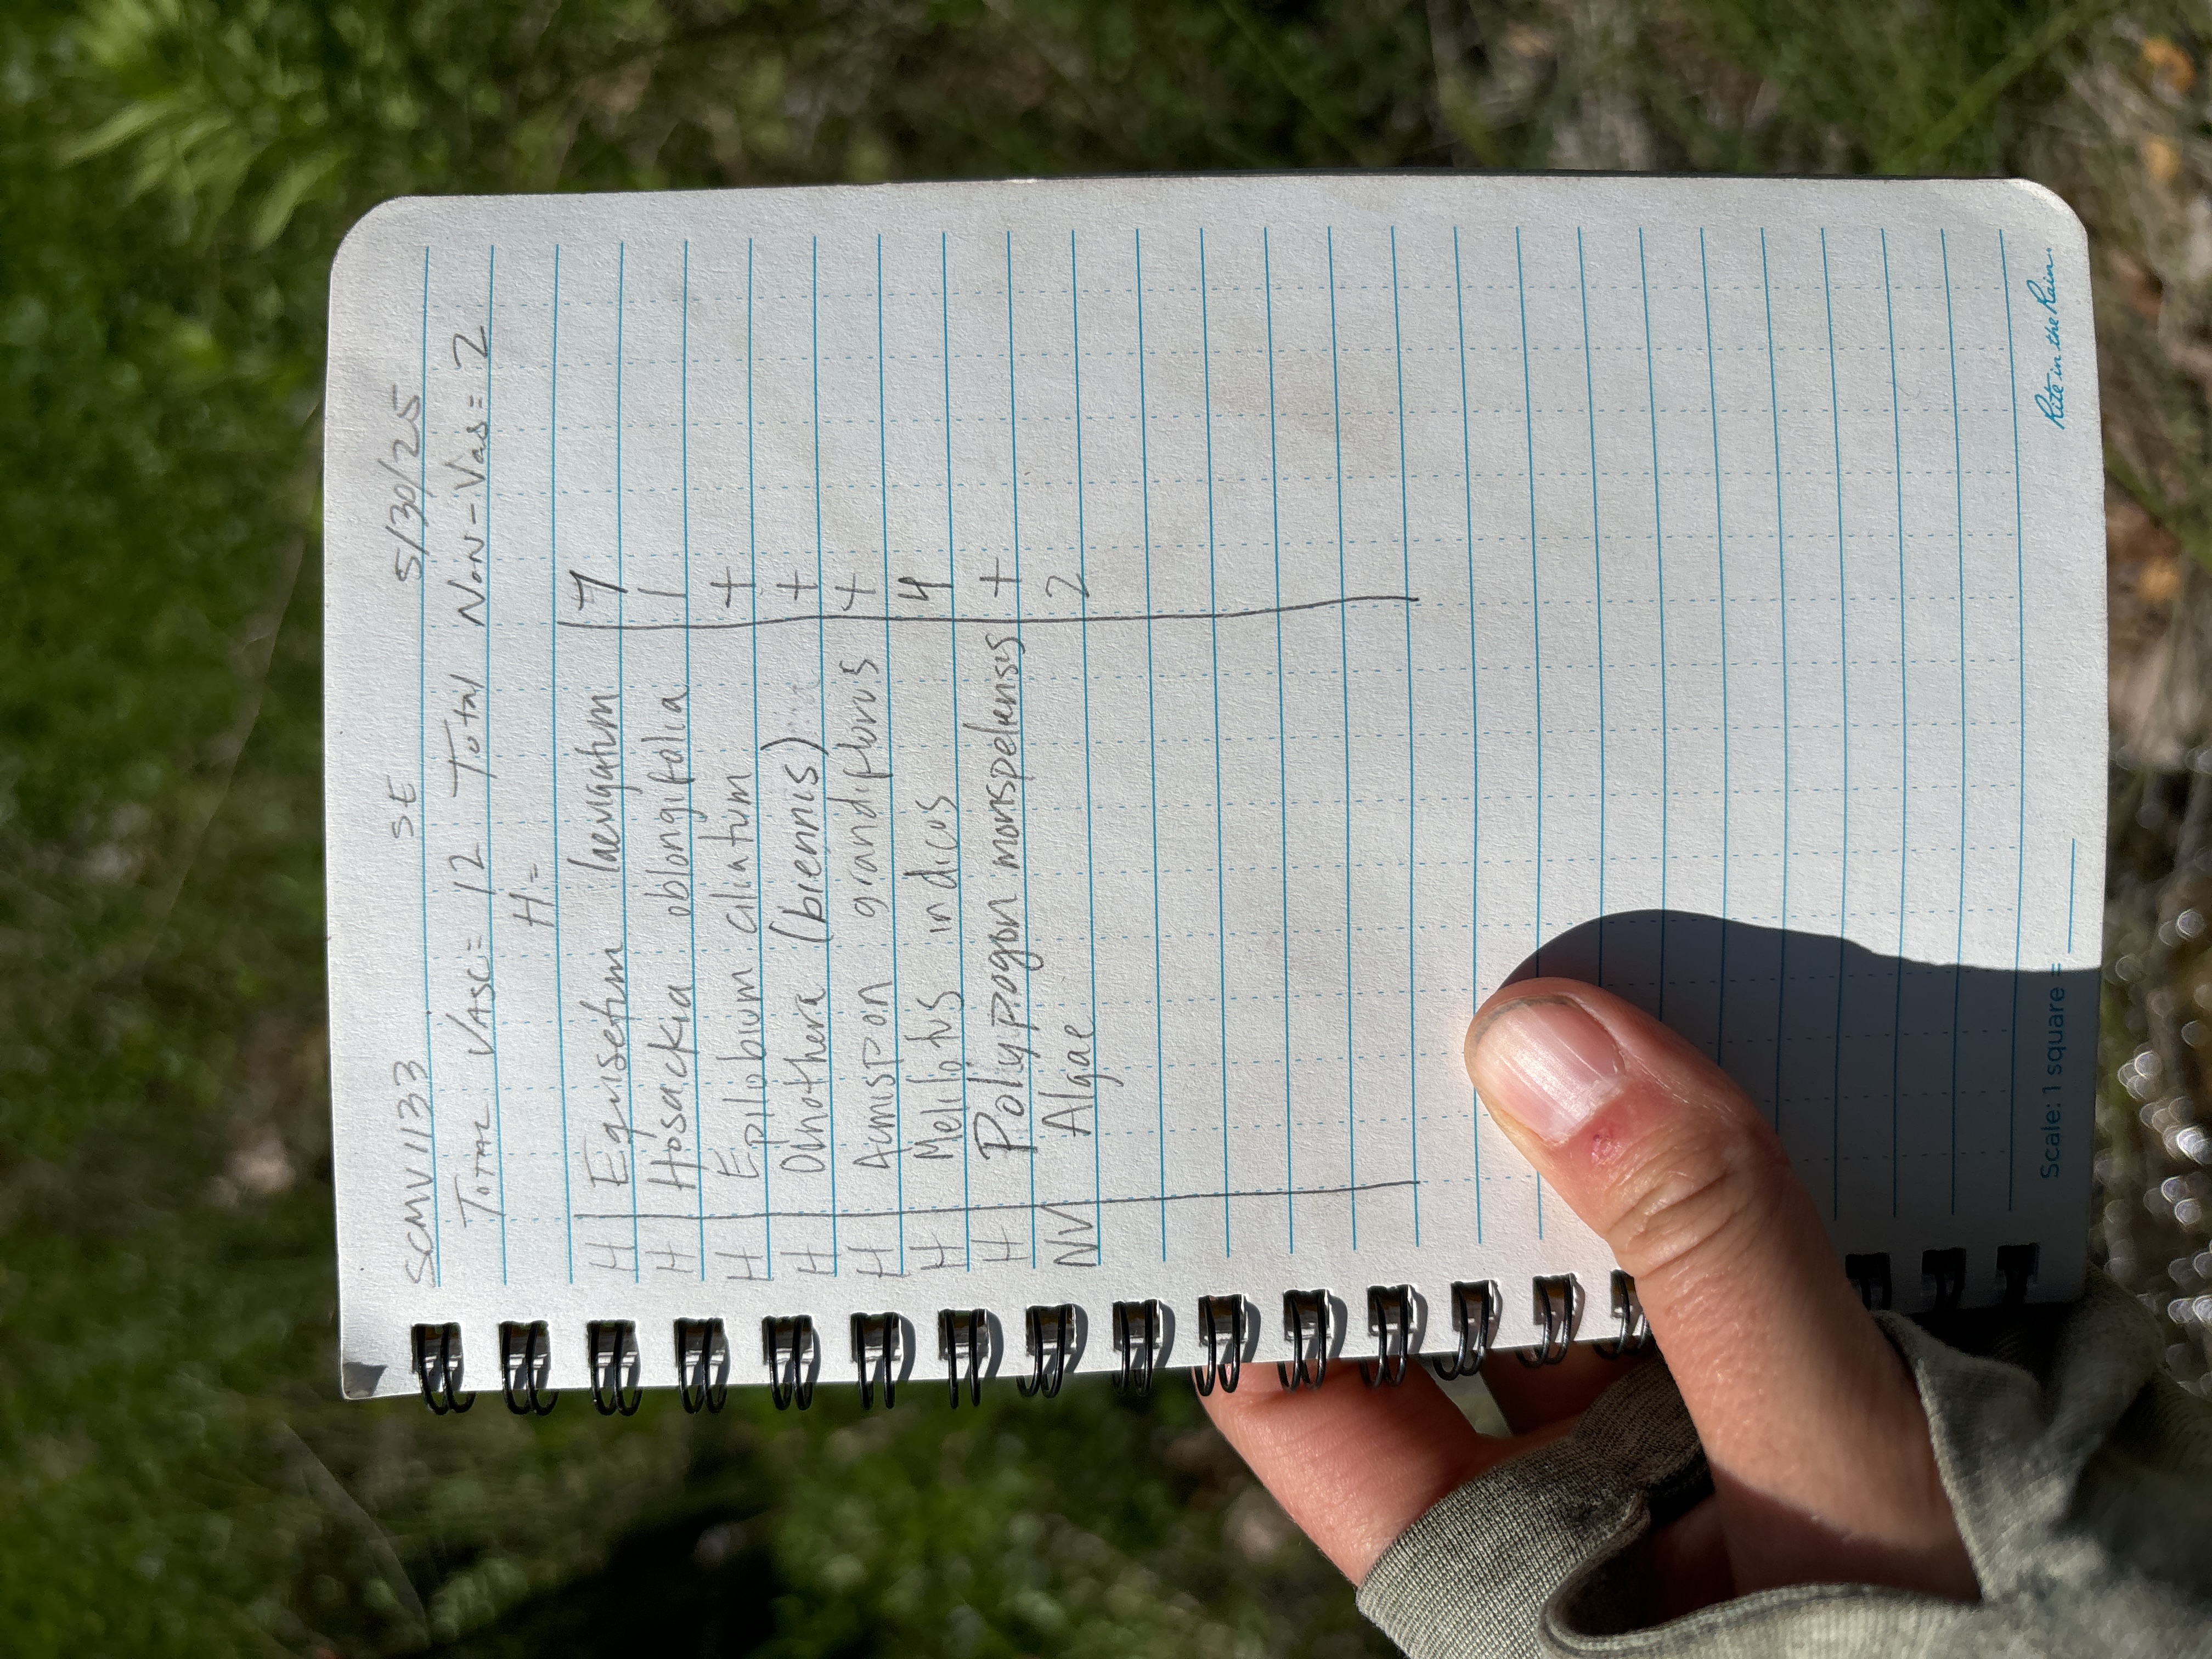 SCMV1133 SE 5/30/25
TOTAL VASC= 12 Total Non-Vas= 2
H=
H Equisetum laevigatum 7
H Hosackia oblongifolia 1
H Epilobium ciliatum +
H Oinothera (biennis) +
H Acmispon grandiflorus +
H Melilotus indicus 4
H Polyppogon monspelensis +
NV Algae 2
Rite in the Rain.
Scale: 1 square =